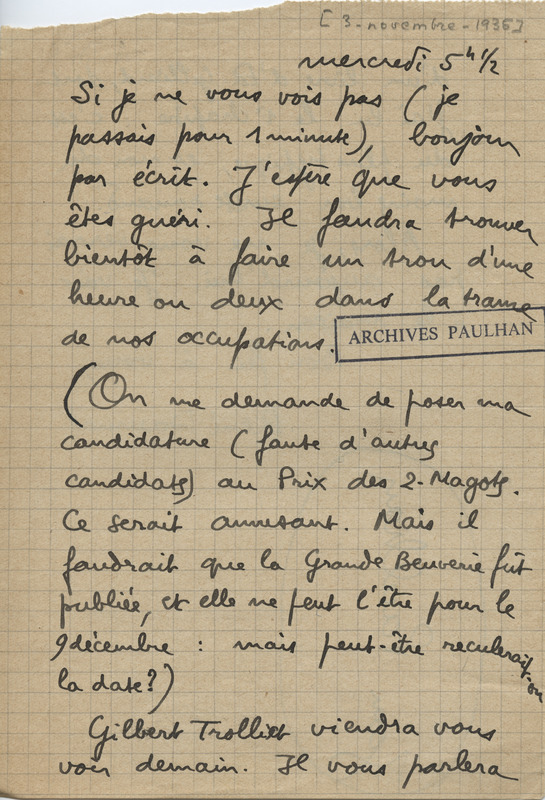 [3-novembre-1936]
mercredi 5h 1/2
Si je ne vous vois pas (je
passais pour 1 minute), bonjour
par écrit. J'espère que vous
êtes guéri. Il faudra trouver
bientôt à faire un trou d'une
heure ou deux dans la trame
de nos occupations.
ARCHIVES PAULHAN
(On me demande de poser ma
candidature (faute d'autres
candidats) au Prix des 2-Magots.
Ce serait amusant. Mais il
faudrait que la Grande Beuverie fût
publiée, et elle ne peut l'être pour le
9 décembre : mais peut-être reculerait-on
la date?)
Gilbert Trolliet viendra vous
voir demain. Il vous parlera